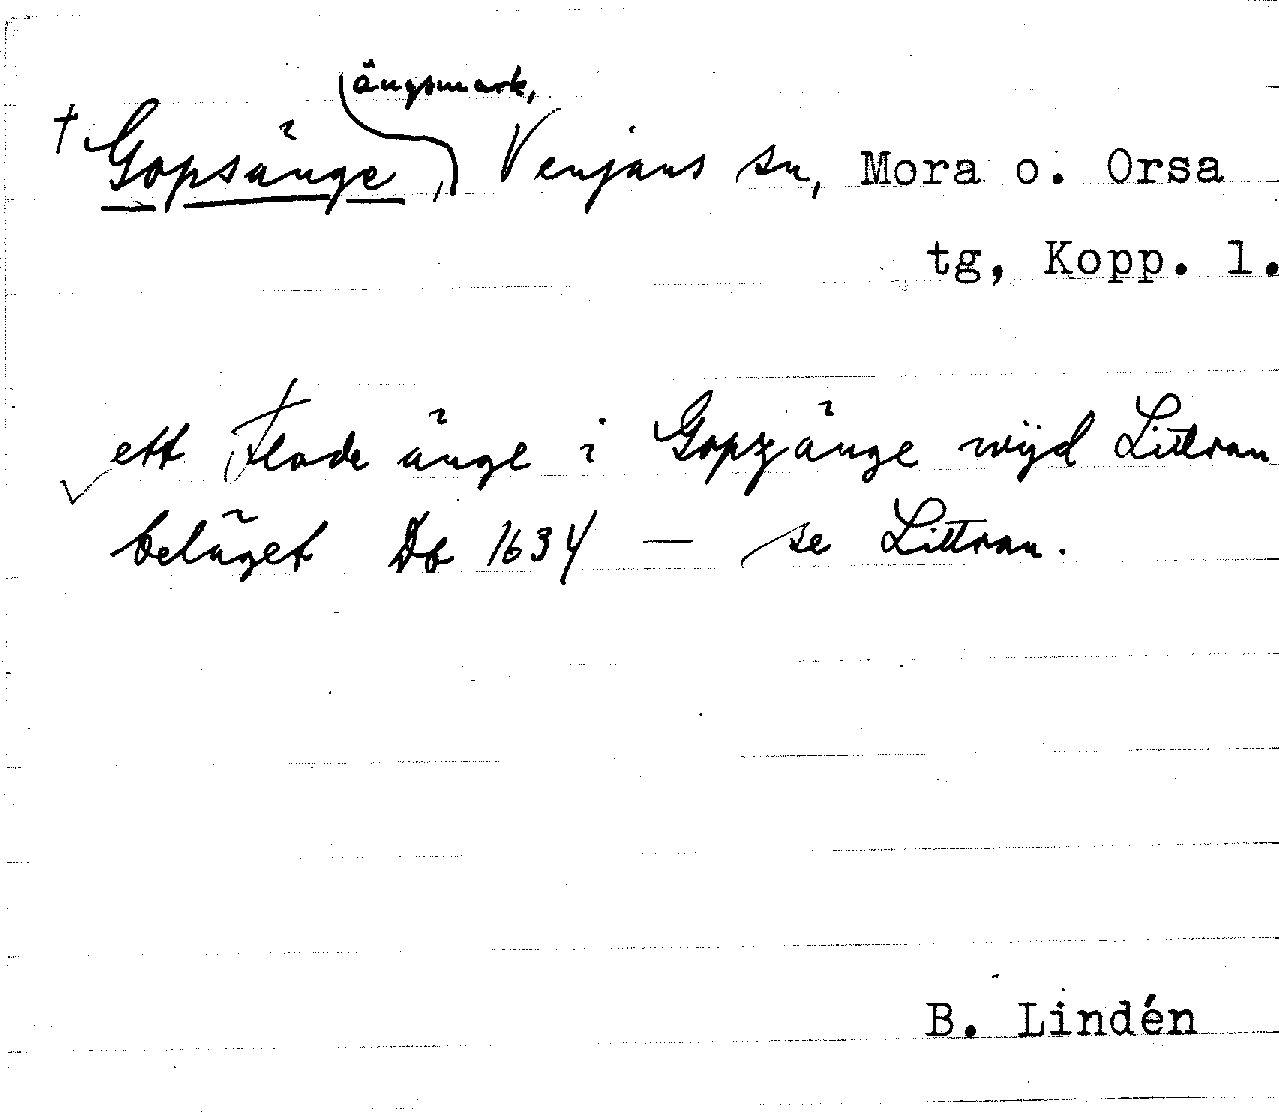 † Gopsänge, ängsmark, Venjans sn, Mora o. Orsa
tg, Kopp. l.
ett Flode änge i Gopzänge wijd Littran
beläget Db 1634 — se Littran.
B. Lindén